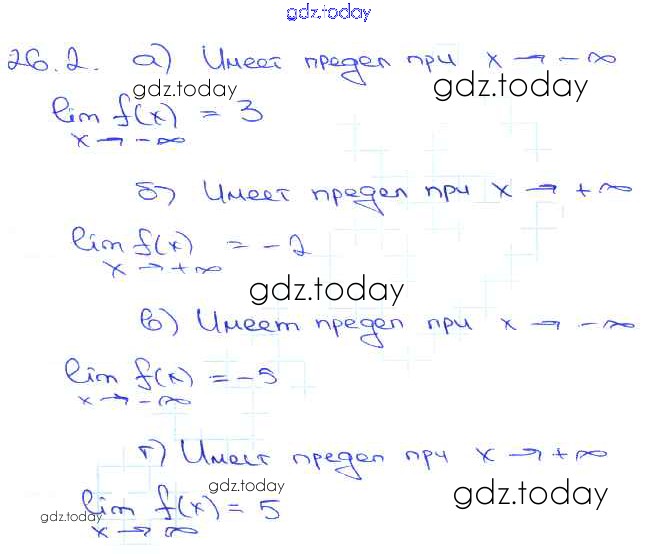 gdz.today
26.2. а) Имеет предел при x → -∞
gdz.today
gdz.today
lim f(x) = 3
x → -∞
б) Имеет предел при x → +∞
lim f(x) = -2
x → +∞
gdz.today
в) Имеет предел при x → -∞
lim f(x) = -5
x → -∞
г) Имеет предел при x → +∞
gdz.today
gdz.today
lim f(x) = 5
gdz.today
x → ∞